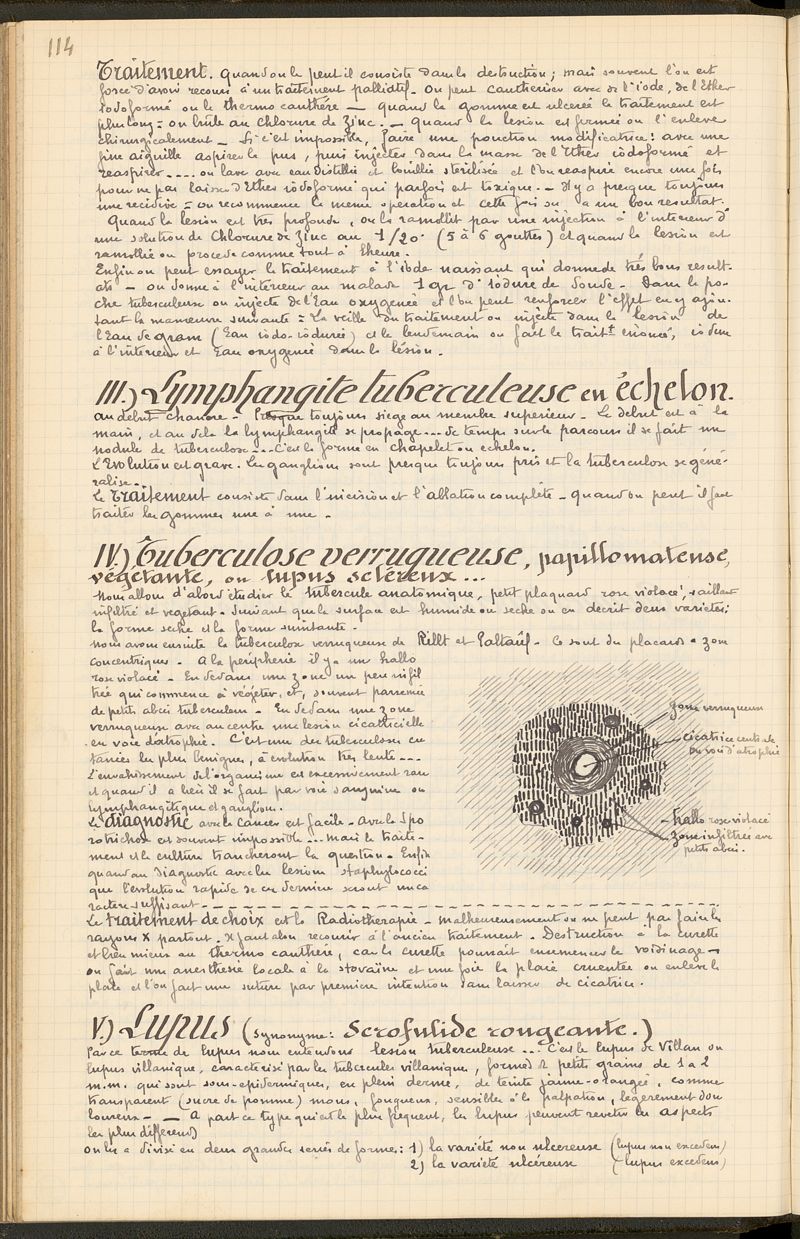 114
Traitement. Quand on le peut il consiste dans la destruction; mais souvent l'on est
forcé d'avoir recours à un traitement palliatif. On peut cauteriser avec de l'iode, de l'Ether
iodoformé ou le thermo cautère — quand la gomme est ulcereé le traitement est
plus long = on brule au Chlorure de Zinc. — quand la lesion est fermeé on l'enlève
chirurgicalement — Si c'est impossible, faire une ponction modificatrice: avec une
fine aiguille aspirer le pus, puis injecter dans la masse de l'Ether iodoformé et
reaspirer.... on lave avec eau distillée et bouillie sterilisée et l'on reaspire encore une fois
pour ne pas laisser d'Ether iodoformé qui parfois est toxique. — Il y a presque toujours
une recidive = on recommence la meme operation et cette fois on a un bon resultat.
Quand la lesion est très profonde, on la ramollit par une injection à l'interieur d'
une solution de Chlorure de Zinc au 1/20. (5 à 6 gouttes) et quand la lesion est
ramollie on procede comme tout à l'heure.
Enfin on peut essayer le traitement à l'iode naissant qui donne de très bons result-
ats — on donne à l'interieur au malade 1 gr d'iodure de Soude. Dans la po-
che tuberculeuse on injecte de l'Eau oxygeneé et l'on peut renforcer l'effet en y ajou-
tant la manœuvre suivante = La veille du traitement on injecte dans la lesion de
l'Eau de gram (Eau iodo-iodureé) et le lendemain on fait le traitt enoncé, iodure
à l'interieur et Eau oxygeneé dans la lésion.
III.) Lymphangite tuberculeuse en échelon.
au debut chancre — Presque toujours siege au membre superieur — Le debut est à la
main, et au dela la lymphangite se propage... de temps sur le parcours il se fait un
nodule de tuberculose... C'est la forme en chapelet ou echelon.
L'Evolution est grave. Les ganglions sont presque toujours pris et la tuberculose se géné-
ralise..
Le Traitement consiste dans l'incision et l'ablation complète — quand on peut il faut
traiter les gommes une à une —
IV.) Tuberculose verruqueuse, papillomateuse,
végétante, ou lupus scléreux...
Nous allons d'abord étudier le tubercule anatomique, petit plaquard rose violacé, saillant
infiltré et vegetant. Suivant que la surface est humide ou seche on en décrit deux varietés;
la forme seche et la forme suintante.
Nous avons ensuite la tuberculose verruqueuse de Rillt et Paltauf — Ce sont des placards à zone
concentriques. A la peripherie il y a un hallo
rose violacé. En dedans une zone un peu infil
trée qui commence à végéter, et, souvent parsemée
de petits abcès tuberculeux. En dedans une zone
verruqueuse avec au centre une lesion cicatricielle
en voie d'atrophie. C'est une des tuberculoses cu
tanées les plus benignes, à evolution très lente...
L'envahissement de l'organisme est excessivement rare
et quand il a lieu il se fait par voie sanguine ou
lymphangitique et ganglions.
Le diagnostic avec le cancer est facile. avec la Spo
rotrichose est souvent impossible... mais le traite-
ment et la culture trancheront la question. Enfin
quand au diagnostic avec les lesions staphylococci
que l'evolution rapide de ces dernieres seront un ca
ractere suffisant — — — —
zone verruqueuse
cicatrice centrale
en voie d'atrophie
hallo rose violacé
zone infiltrée avec
petits abcès.
Le traitement de choix est la Radiotherapie — malheureusement on ne peut pas faire les
rayons X partout. Il faut alors recourir à l'ancien traitement. Destruction à la curette
et bien mieux au thermo cautère, car la curette pourrait ensemencer le voisinage —
on fait une anesthesie locale à la stovaïne et une fois la plaie cruentée on enlève la
plaie et l'on fait une suture par premiere intention sans laisser de cicatrice.
V.) Lupus (synonyme: Scrofulide rongeante.)
Par ce terme de lupus nous entendons lesion tuberculeuse... C'est le lupus de Villan ou
lupus villanique, caracterisé par les tubercules villaniques, formés de petits grains de 1 à 2
m.m. qui sont sous-epidermiques, en plein derme, de teinte jaune-orangée, comme
transparent (sucre de pomme) mous, fongueux, sensibles à la palpation, legerement dou
loureux — — A part ce type qui est le plus frequent, les lupus peuvent revetir les aspects
les plus différends
on les a divisé en deux grandes series de formes: 1) la varieté non ulcereuse (lupus non excedens)
2) la varieté ulcéreuse (lupus excedens)